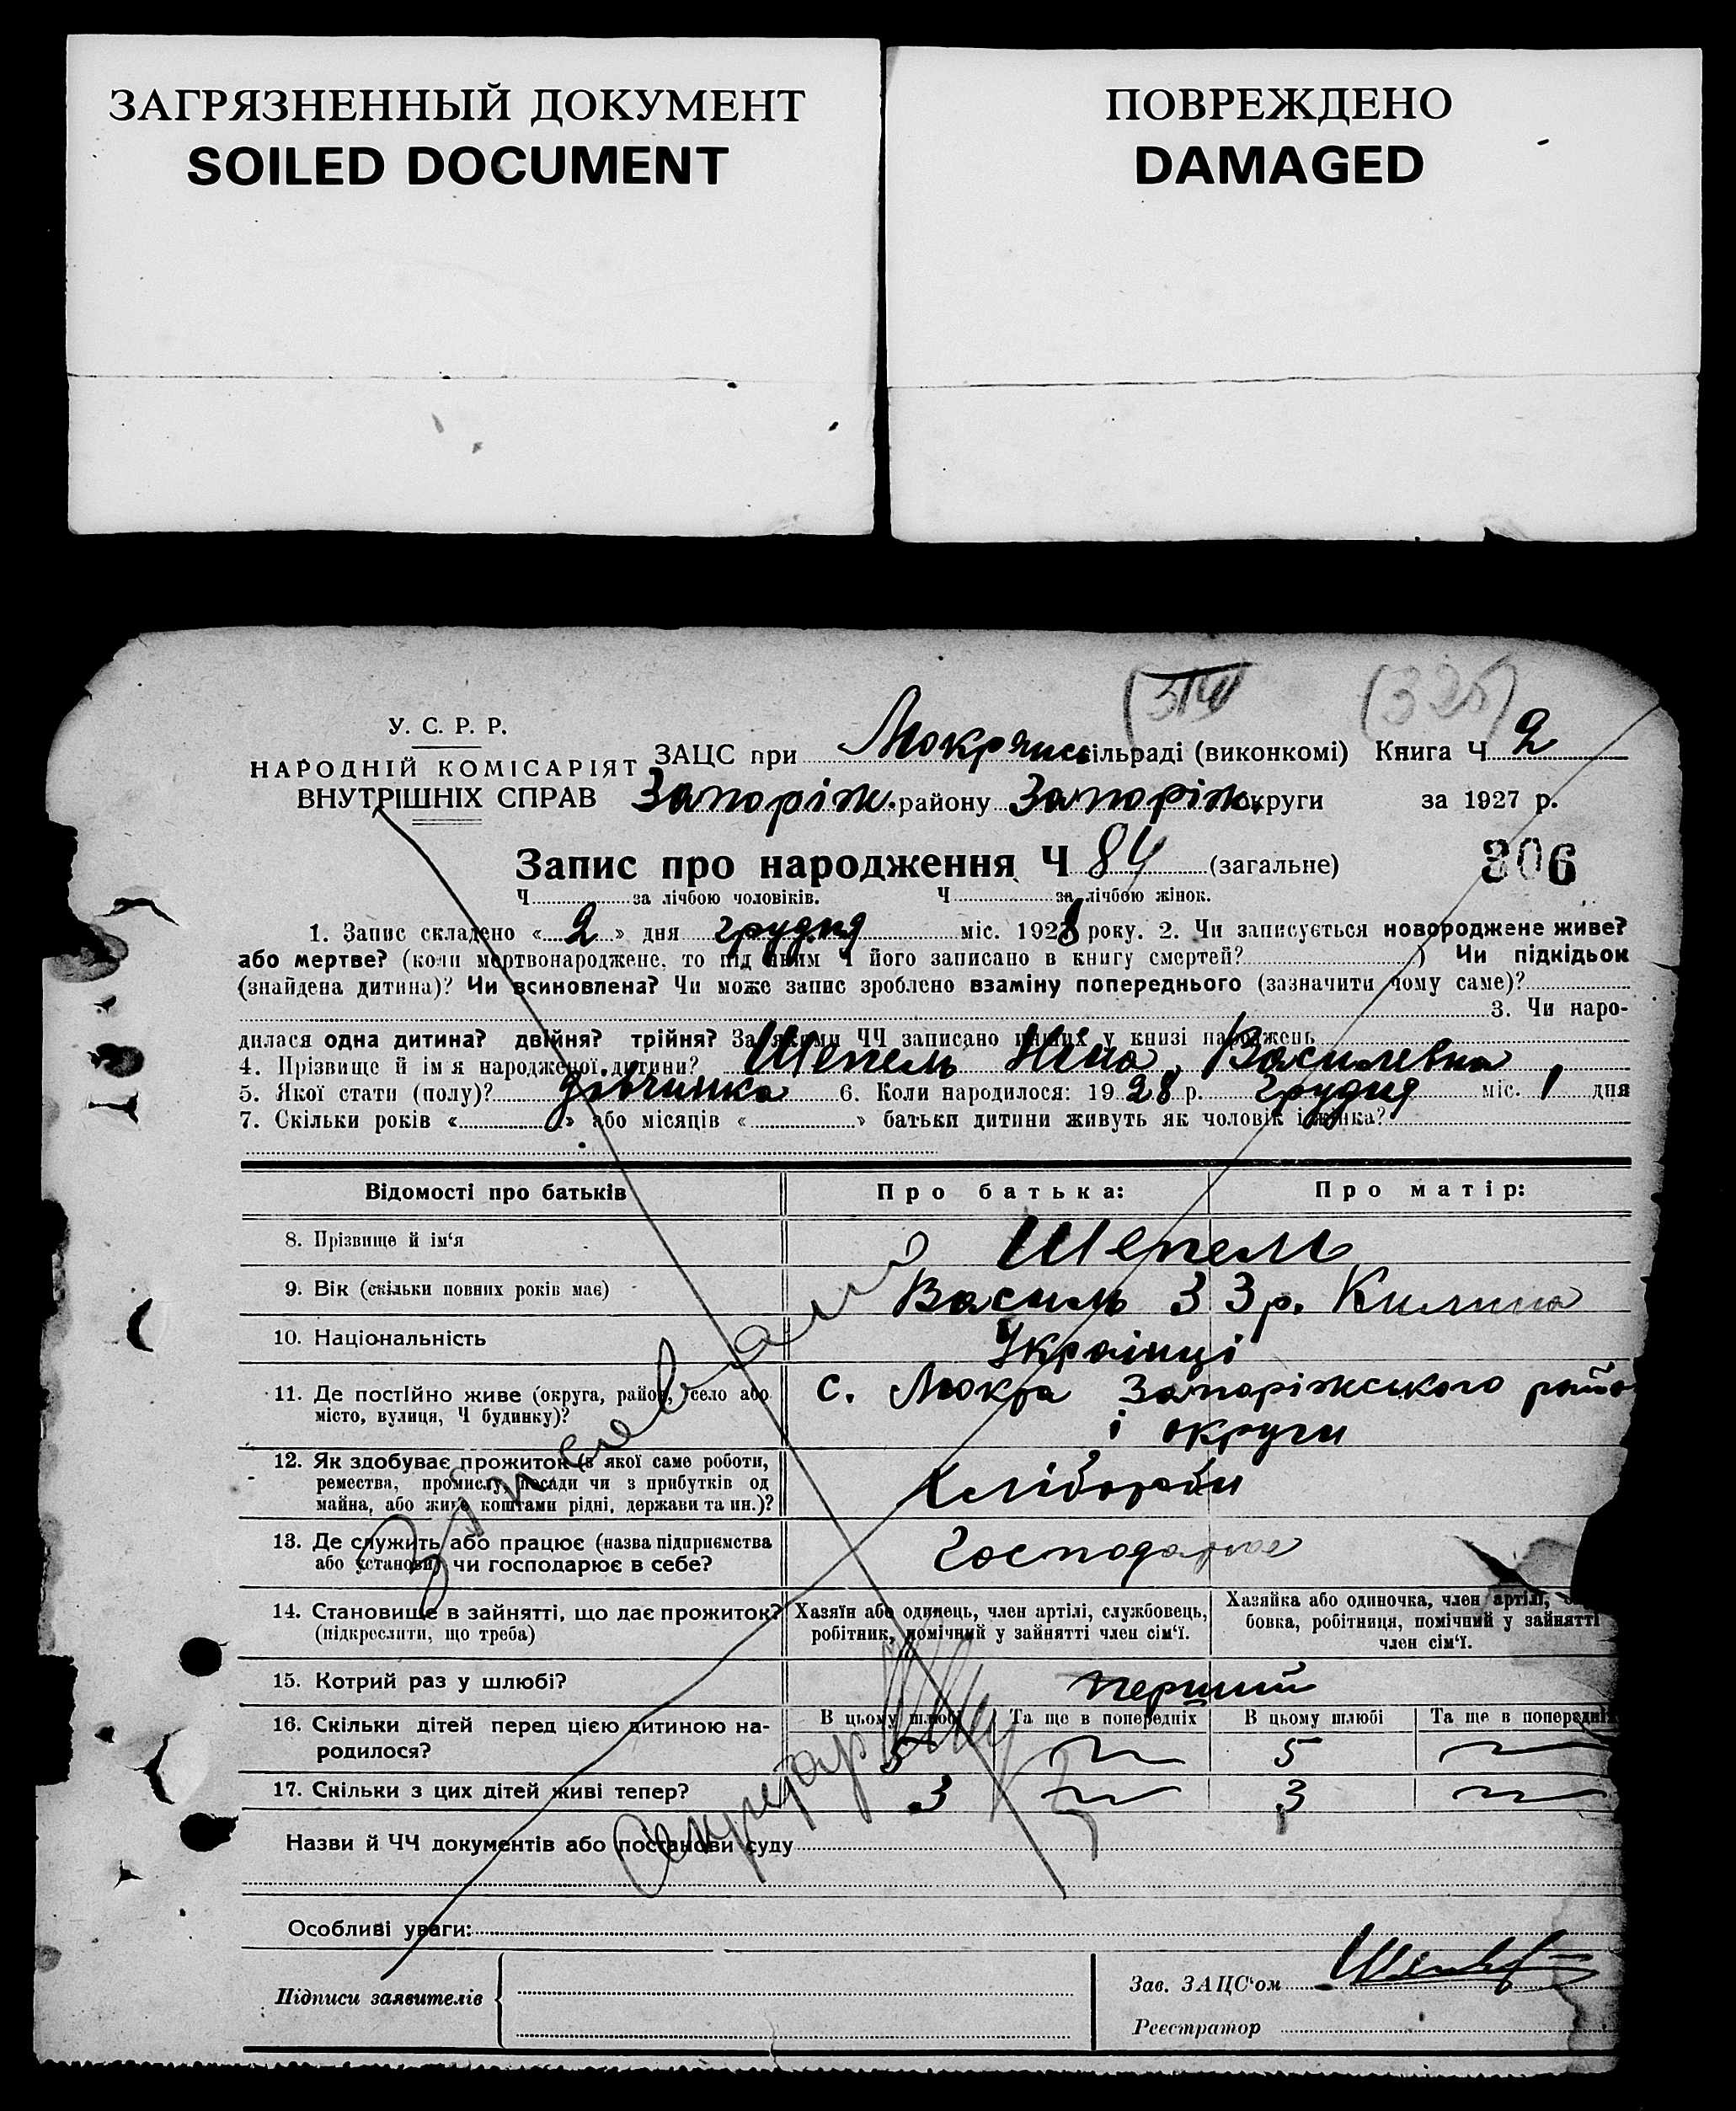 ЗАГРЯЗНЕННЫЙ ДОКУМЕНТ
SOILED DOCUMENT
ПОВРЕЖДЕНО
DAMAGED
(325)
У. С. Р. Р.
НАРОДНІЙ КОМІСАРІЯТ
ВНУТРІШНІХ СПРАВ
ЗАЦС при Мокрянсь сільраді (виконкомі) Книга Ч 2
Запоріж. району Запоріж. округи за 1927 р.
Запис про народження Ч 84 (загальне)
306
Ч за лічбою чоловіків. Ч за лічбою жінок.
1. Запис складено « 2 » дня грудня міс. 1928 року. 2. Чи записується новороджене живе?
або мертве? (коли мертвонароджене, то під яким Ч його записано в книгу смертей? ) Чи підкідьок
(знайдена дитина)? Чи всиновлена? Чи може запис зроблено взаміну попереднього (зазначити чому саме)?
3. Чи наро-
дилася одна дитина? двійня? трійня? За якими ЧЧ записано инших у книзі народжень
4. Прізвище й ім'я народженої дитини? Шепель Ніна Василевна
5. Якої стати (полу)? дівчинка 6. Коли народилося: 1928 р. грудня міс. 1 дня
7. Скільки років « » або місяців « » батьки дитини живуть як чоловік і жінка?
Відомості про батьків Про батька: Про матір:
8. Прізвище й ім'я Шепель
9. Вік (скільки повних років має) Василь 33р. Килина
10. Національність Українці
11. Де постійно живе (округа, район, село або с. Мокра Запоріжського райо
місто, вулиця, Ч будинку)? і округи
12. Як здобуває прожиток (з якої саме роботи,
ремества, промислу, посади чи з прибутків од Хлібороби
майна, або живе коштами рідні, держави та ин.)?
13. Де служить або працює (назва підприємства
або установи) чи господарює в себе?
14. Становище в зайнятті, що дає прожиток? Хазяїн або одинець, член артілі, службовець, Хазяйка або одиночка, член артілі,
(підкреслити, що треба) робітник, помічний у зайнятті член сім'ї. бовка, робітниця, помічний у зайнятті
член сім'ї.
15. Котрий раз у шлюбі? перший
16. Скільки дітей перед цією дитиною на- В цьому шлюбі Та ще в попередніх В цьому шлюбі Та ще в попередніх
родилося? 5 5
17. Скільки з цих дітей живі тепер? 3 3
Секретар
Назви й ЧЧ документів або постанови суду
Особливі уваги:
Підписи заявителів
Зав. ЗАЦС'ом
Реєстратор